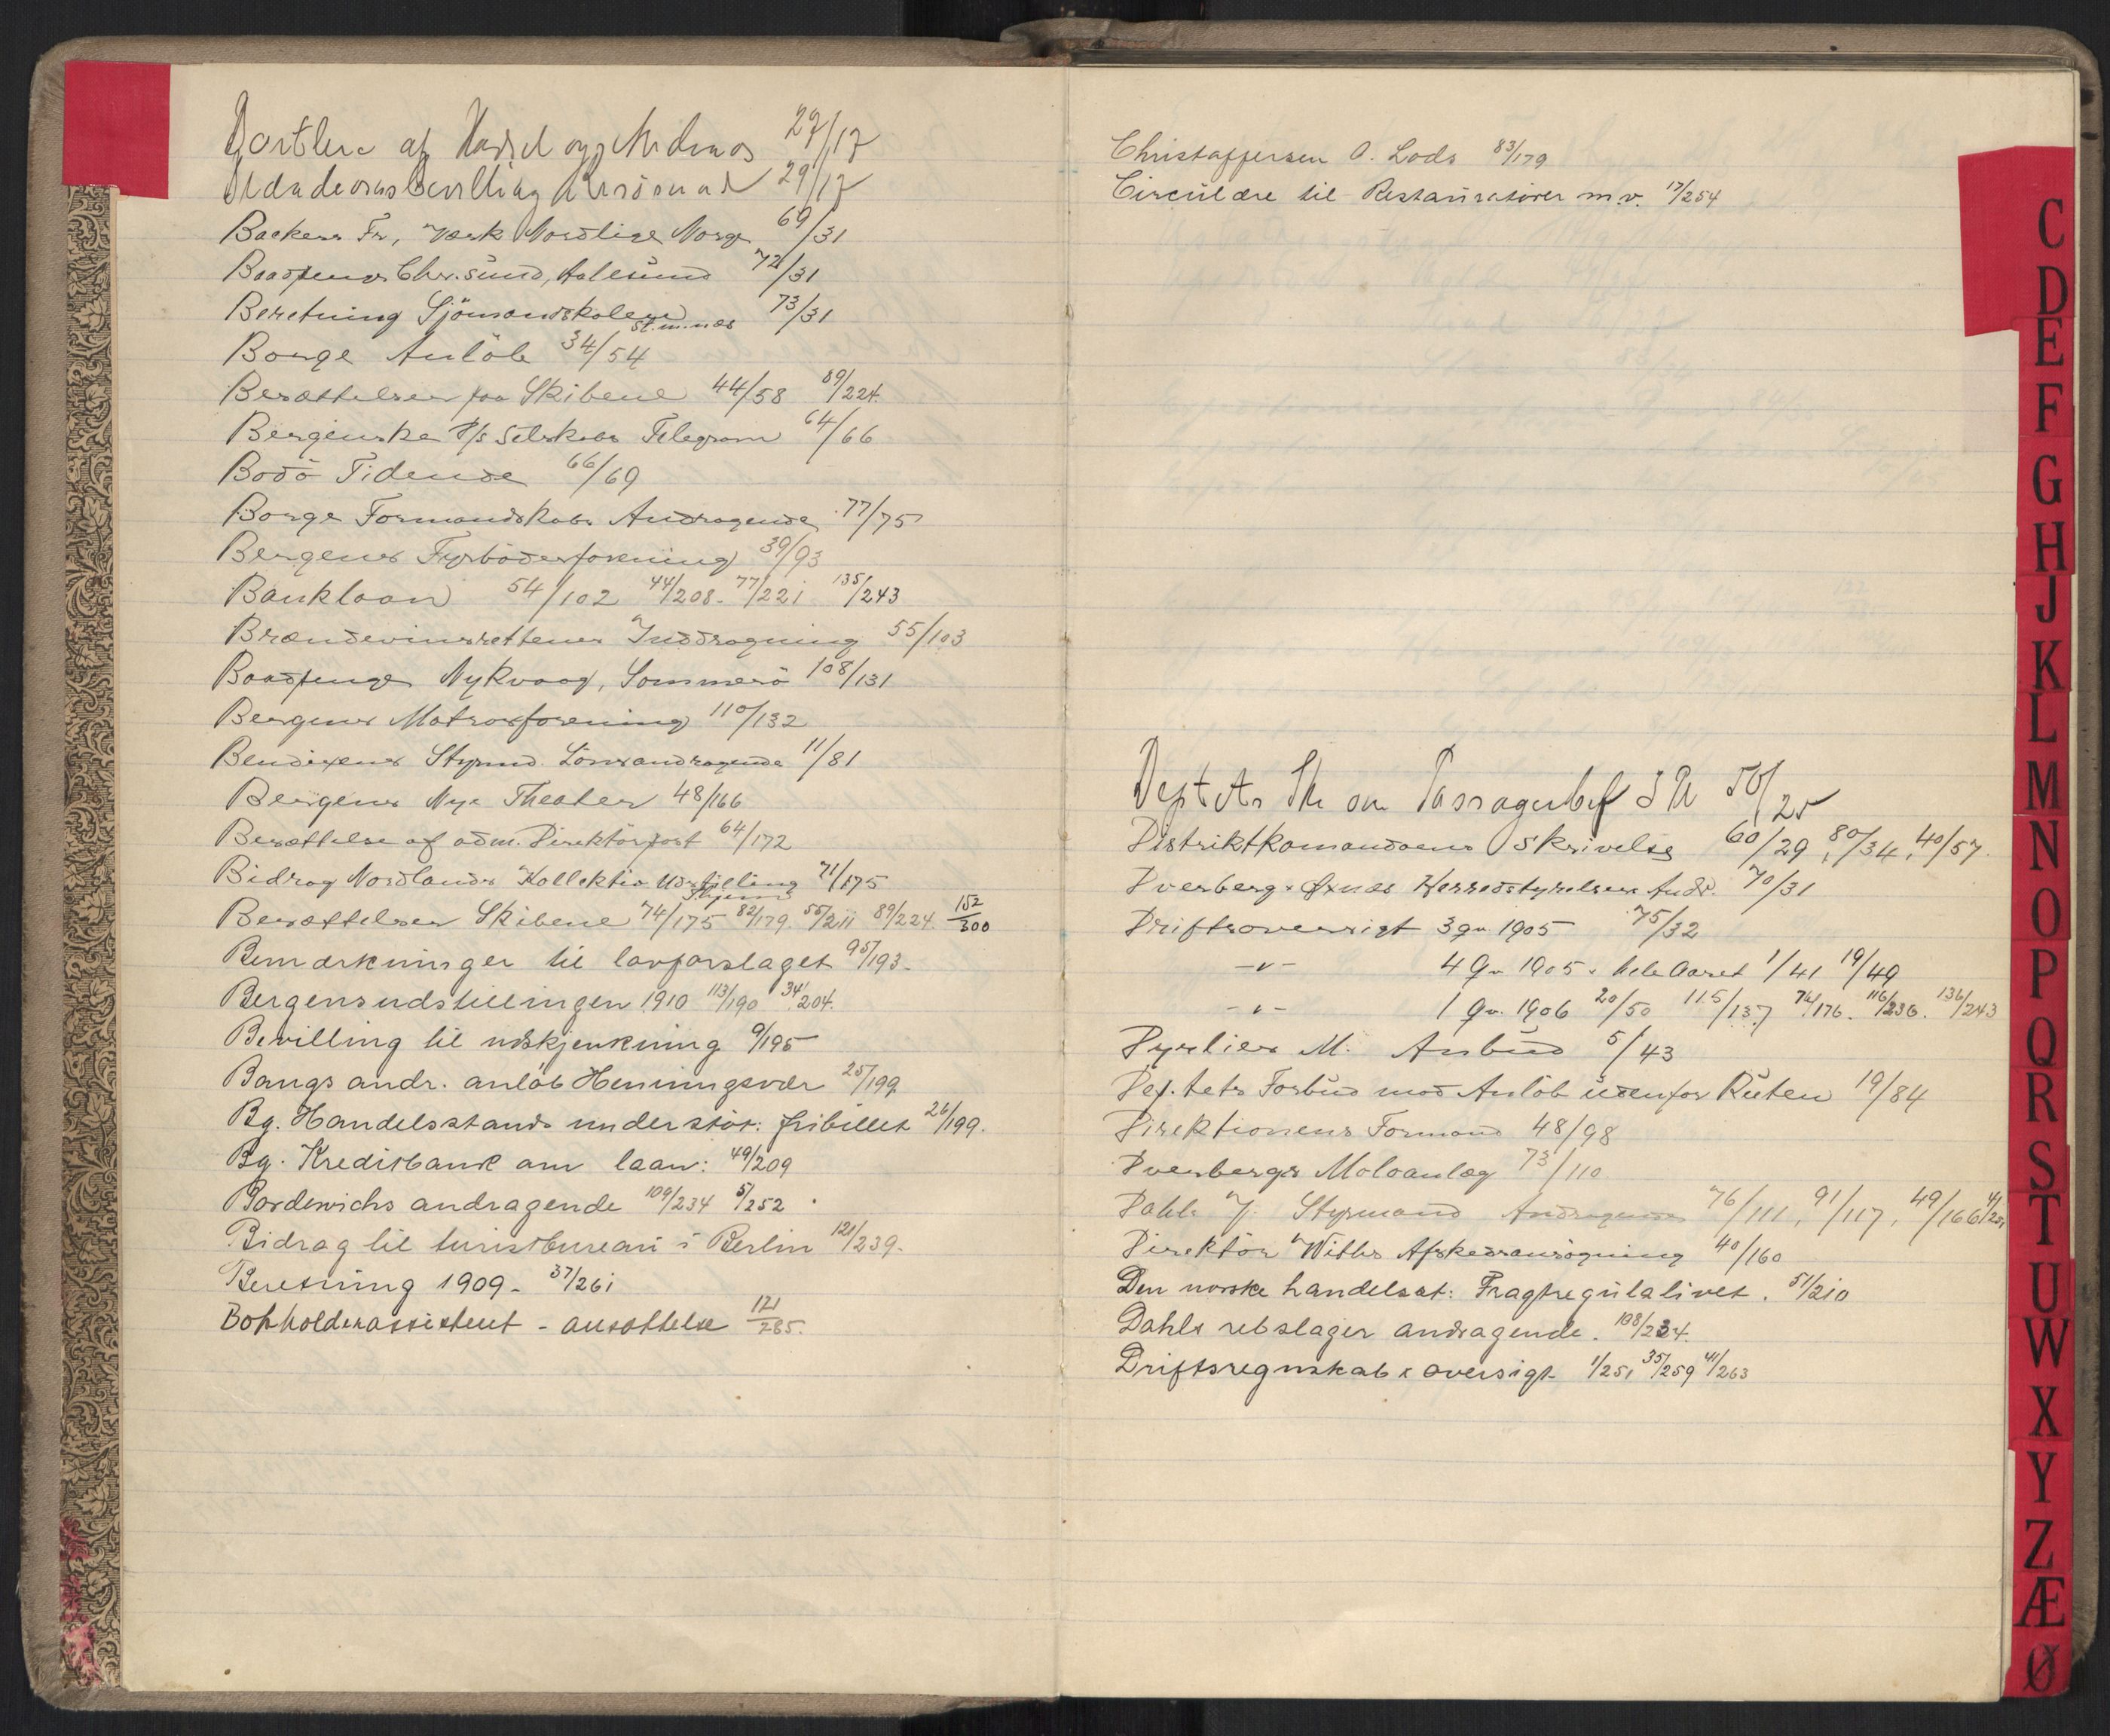 27/17
29/17
Backers Fr, Værk Nordlige Norge 69/31
Baadpenge Chr.sund, Aalesund 72/31
Beretning Sjömandskolen 73/31
st.m.næs
Borge Anlöb 34/54
Besættelser paa Skibene 44/58 89/224.
Bergenske D/s Selskabs Telegram 64/66
Bodö Tidende 66/69
Borge Formandskabs Andragende 77/75
Bergens Fyrböderforening 39/93
Banklaan 54/102 44/208. 77/221 135/243
Brændevinsrettens Inddragning 55/103
Baadpenge Nykvaag, Sommerö 108/131
Bergens Matrosforening 110/132
Bendixens Styrmd. Lönsandragende 11/81
Bergens Nye Theater 48/166
Besættelse af adm. Direktörpost 64/172
Bidrag Nordlands Kollektiv Udstilling 71/175
Besættelser Skibene 74/175 82/179. 55/211 89/224. 152/300
Bemærkninger til lovforslaget 95/193.
Bergensudstillingen 1910 113/190 34/204.
Bevilling til udskjenkning 9/195
Bangs andr. anlöb Henningsvær 25/199
Bg. Handelsstands understöt: fribillet 26/199.
Bg. Kreditbank om laan: 49/209
Bordewichs andragende 109/234 5/252
Bidrag til turistbureau i Berlin 121/239.
Beretning 1909. 37/261
Bokholderassistent - ansættelse 121/285.
Christoffersen O. Lods 83/179
Circulære til Restauratörer m.v. 17/254
Dept.ets Skr om Passagerbef 50/25
Distriktkomandoens Skrivelse 60/29, 80/34, 40/57.
Dverberg & Öxnes Herredstyrelsers Andr. 70/31
Driftsoversigt 3 qv 1905 75/32
-"- 4 Qv. 1905 & hele Aaret 1/41 19/49
-"- 1 Qv. 1906 20/50 115/137 76/176. 116/236. 136/243
Dyrlier M. Anbud 5/43
Dep.tets Forbud mod Anlöb udenfor Ruten 19/84
Direktionens Formand 48/98
Dverbergs Moloanlæg 73/110
Dahl J. Styrmand Andragende 76/111, 91/117, 49/166
Direktör Withs Afskedsansögning 40/160
Den norske handelsst: Fragtregulativet. 51/210
Dahls rebslager andragende. 108/234.
Driftsregnskab & oversigt 1/251 35/259 41/263
C
D
E
F
G
H
J
K
L
M
N
O
P
Q
R
S
T
U
W
X
Y
Z
Æ
Ø